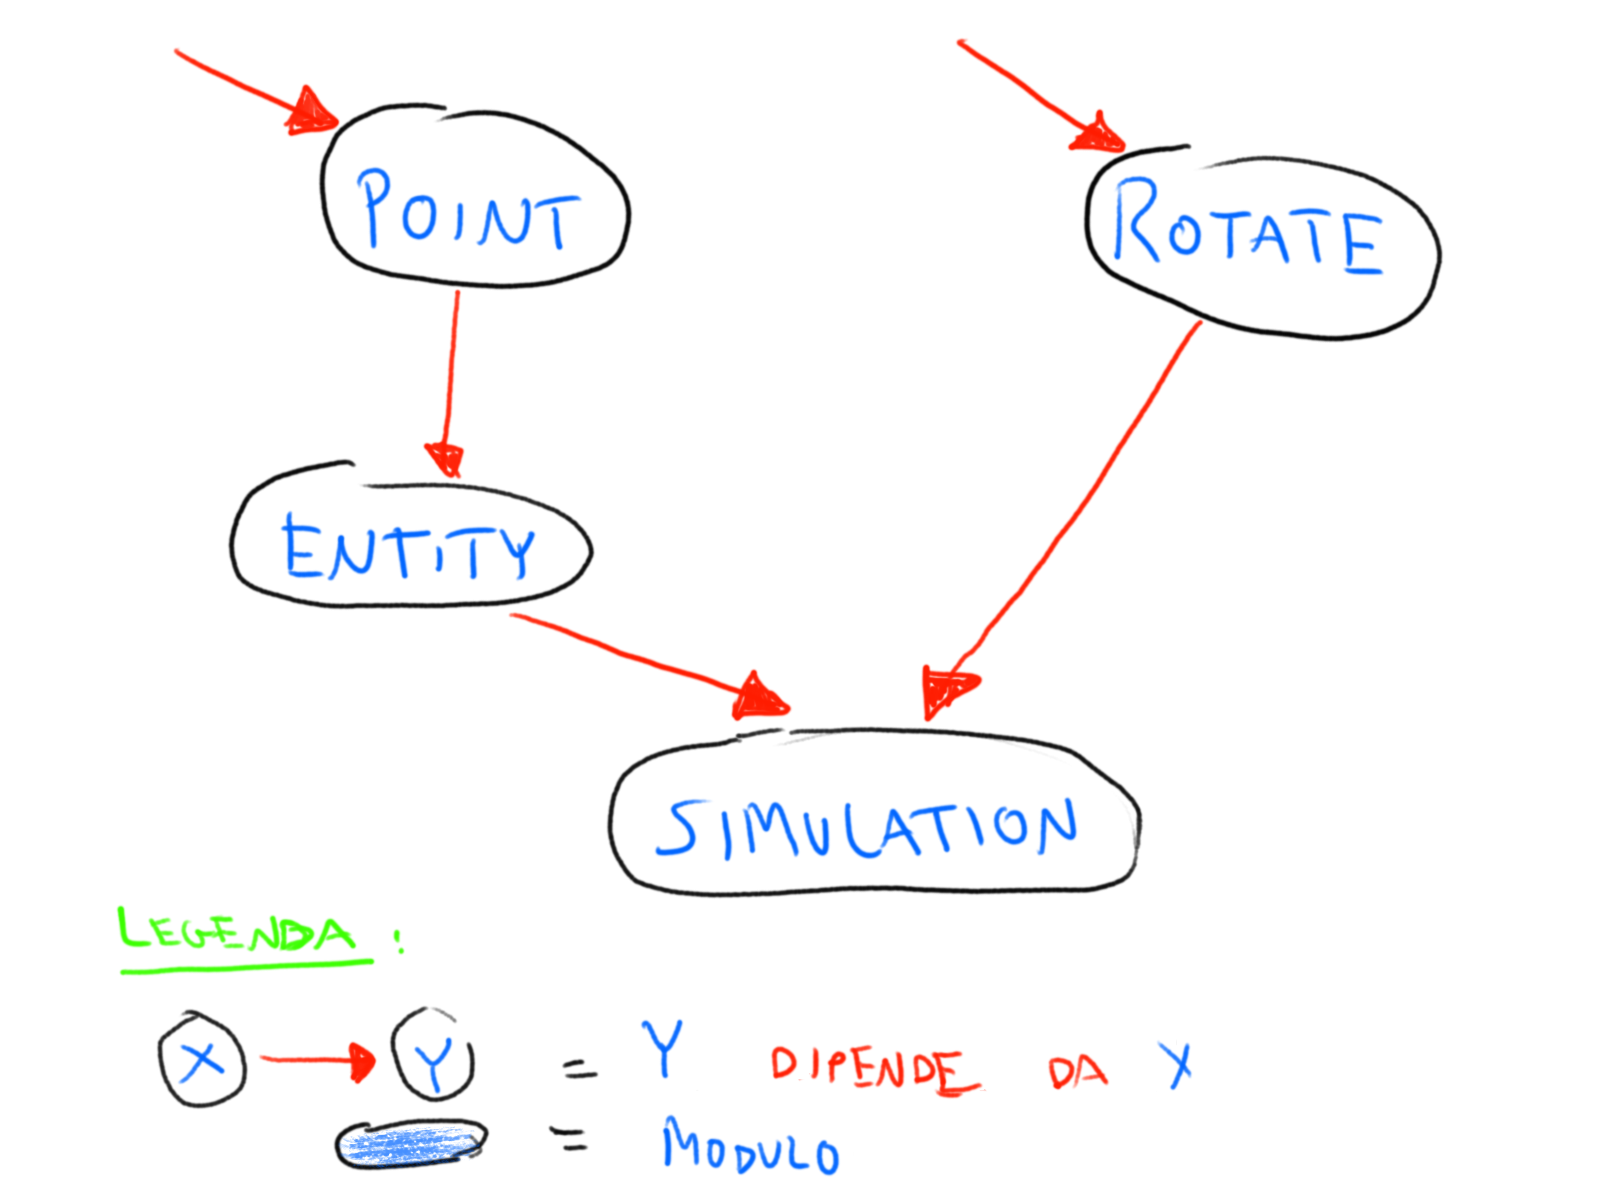 POINT
ROTATE
ENTITY
SIMULATION
LEGENDA:
X → Y = Y DIPENDE DA X
= MODULO